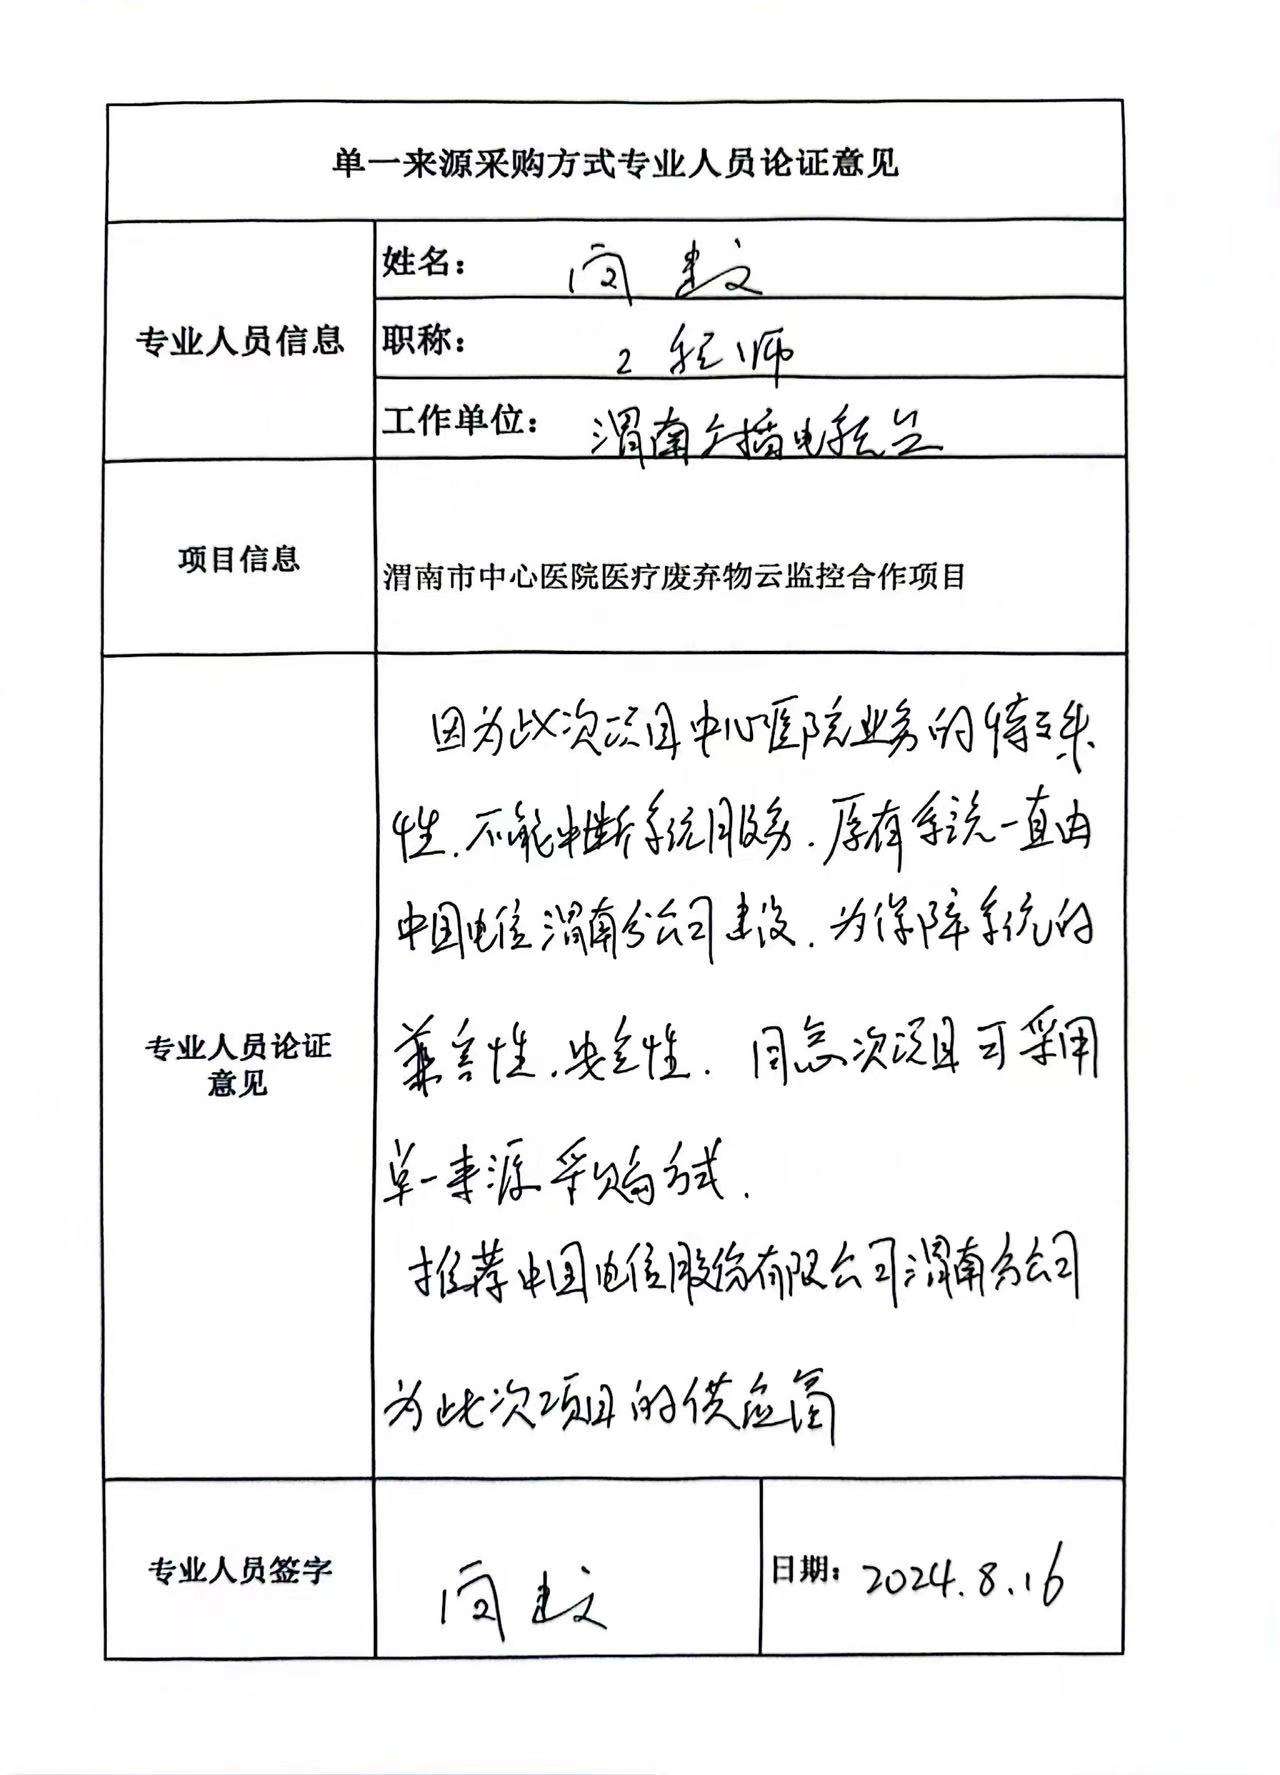 单一来源采购方式专业人员论证意见
专业人员信息
姓名：
建文
职称：
工程师
工作单位：
渭南广播电视台
项目信息
渭南市中心医院医疗废弃物云监控合作项目
专业人员论证
意见
因为此次项目中心医院业务的特殊
性.不能中断系统服务.原有系统一直由
中国电信渭南分公司建设.为保障系统的
兼容性.安全性.同意次项目可采用
单一来源采购方式.
推荐中国电信股份有限公司渭南分公司
为此次项目的供应商
专业人员签字
建文
日期：2024.8.16